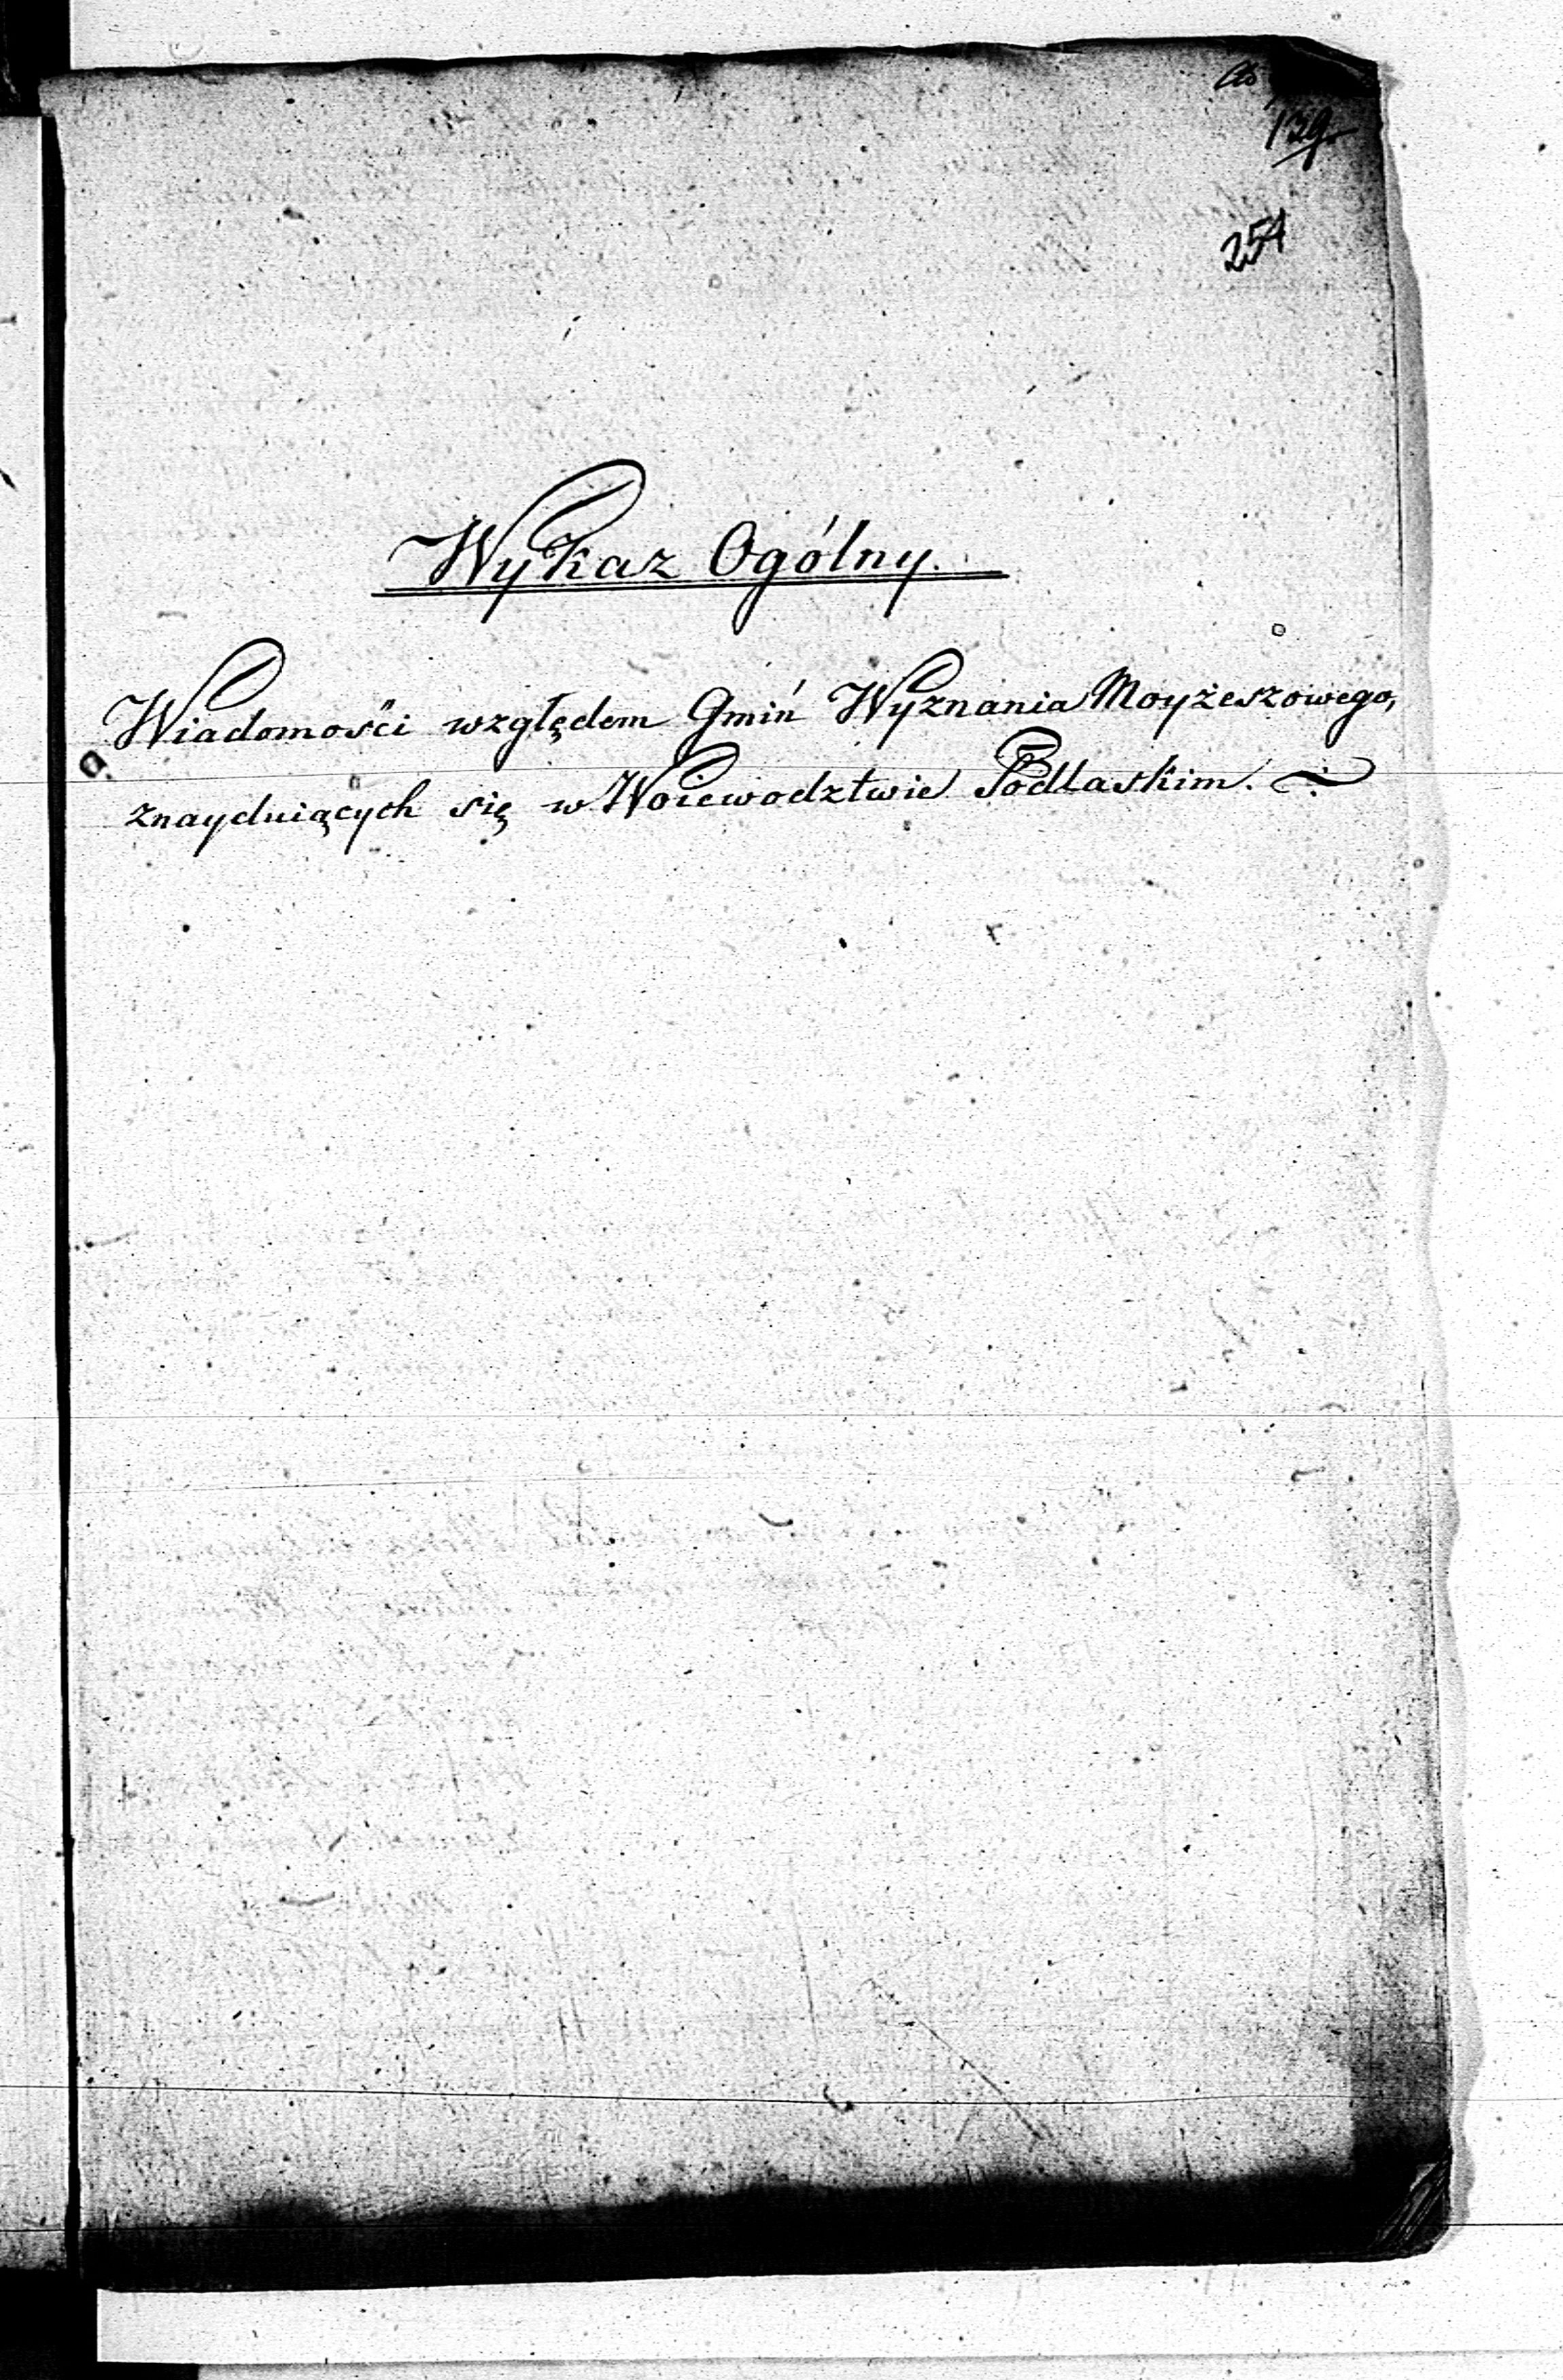 139
254
Wykaz Ogólny.
Wiadomości względem Gmin Wyznania Moyżeszowego,
znayduiących się w Woiewodztwie Podlaskim.